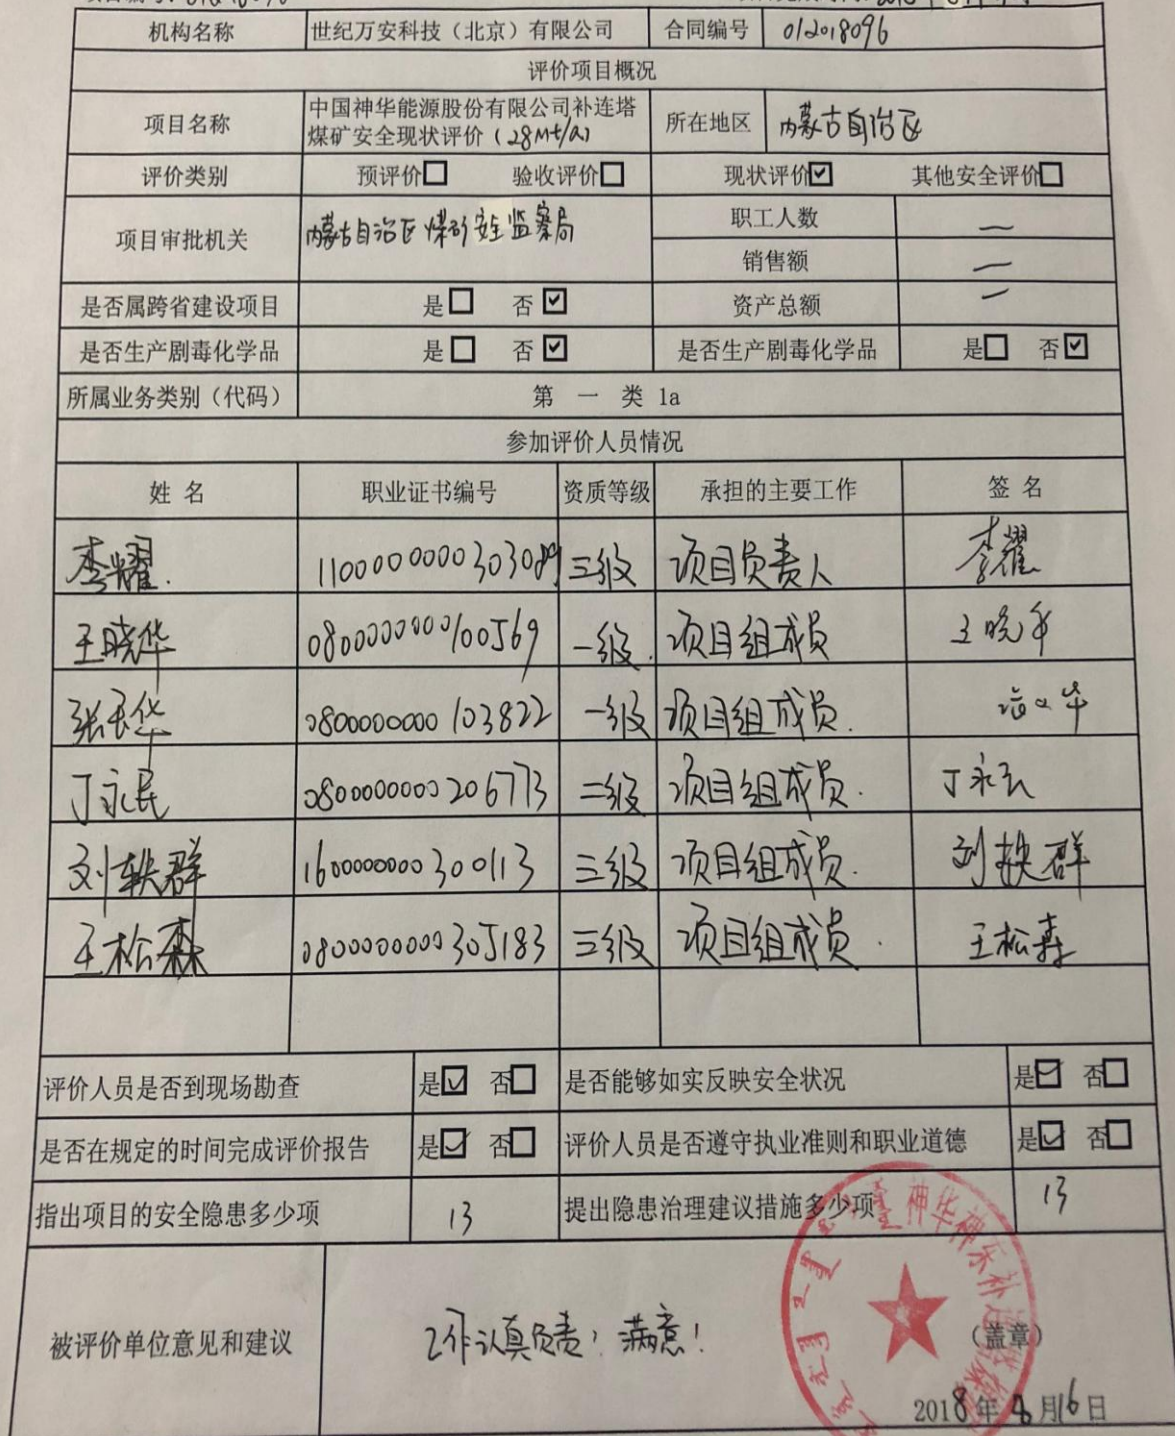 机构名称 世纪万安科技（北京）有限公司 合同编号 012018096
评价项目概况
项目名称 中国神华能源股份有限公司补连塔
煤矿安全现状评价（28Mt/a） 所在地区 内蒙古自治区
评价类别 预评价□ 验收评价□ 现状评价☑ 其他安全评价□
项目审批机关 内蒙古自治区煤矿安全监察局
职工人数 —
销售额 —
是否属跨省建设项目 是□ 否☑ 资产总额 —
是否生产剧毒化学品 是□ 否☑ 是否生产剧毒化学品 是□ 否☑
所属业务类别（代码） 第 一 类 1a
参加评价人员情况
姓 名 职业证书编号 资质等级 承担的主要工作 签 名
李耀 三级 项目负责人 李耀
王晓华 0800000000100569 一级 项目组成员 王晓华
0800000000103822 一级 项目组成员
丁永民 0800000000206773 二级 项目组成员 丁永民
刘轶群 1600000000300113 三级 项目组成员 刘轶群
王松森 0800000000305183 三级 项目组成员 王松森
评价人员是否到现场勘查 是☑ 否□ 是否能够如实反映安全状况 是☑ 否□
是否在规定的时间完成评价报告 是☑ 否□ 评价人员是否遵守执业准则和职业道德 是☑ 否□
指出项目的安全隐患多少项 13 提出隐患治理建议措施多少项 13
被评价单位意见和建议 工作认真负责！满意！
（盖章）
2018年8月16日